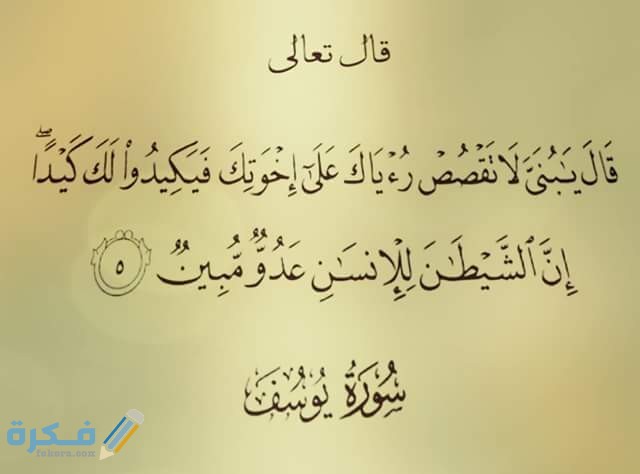 قال تعالى
قَالَ يَـٰبُنَىَّ لَا تَقْصُصْ رُءْيَاكَ عَلَىٰٓ إِخْوَتِكَ فَيَكِيدُوا۟ لَكَ كَيْدًا ۖ
إِنَّ ٱلشَّيْطَـٰنَ لِلْإِنسَـٰنِ عَدُوٌّ مُّبِينٌ ٥
سُورَةُ يُوسُفَ
فكرة
fekera.com